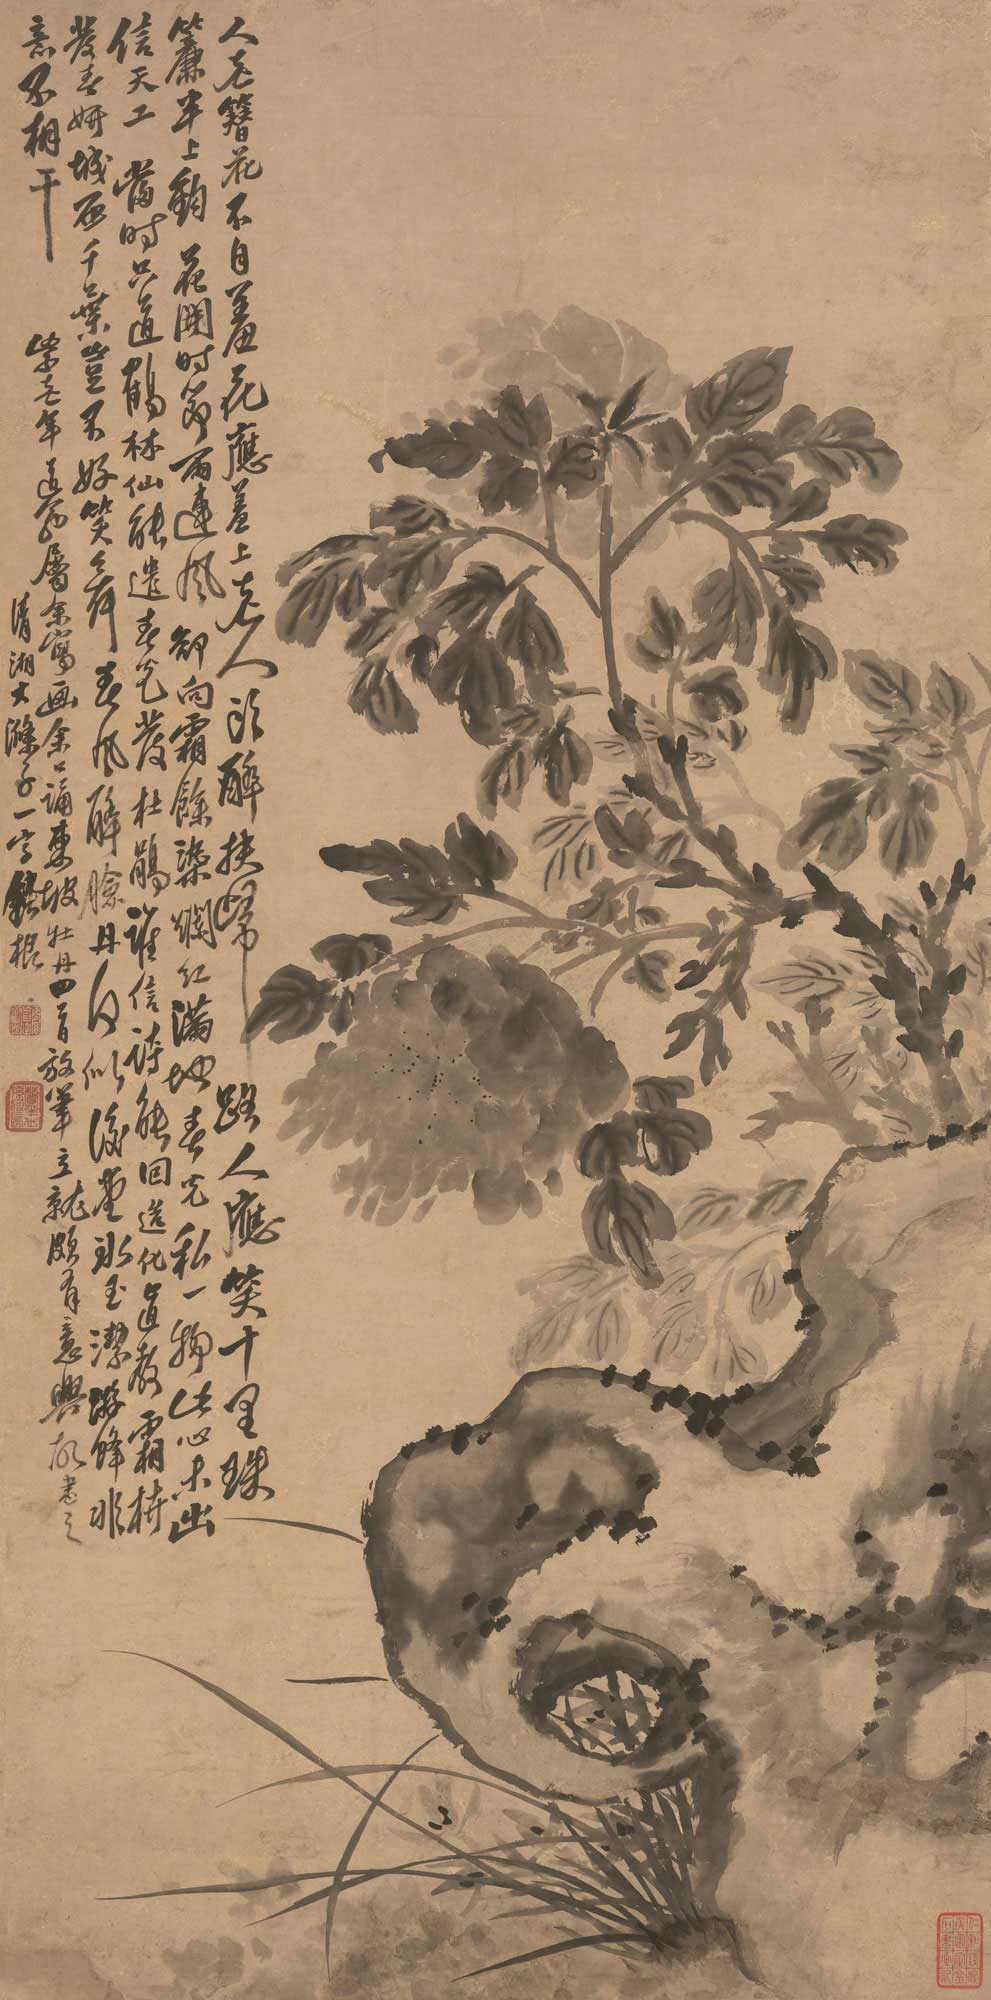 人老簪花不自羞花應羞上老人頭醉扶歸路人應笑十里珠
簾半上鈎花開時節雨連風却向霜餘染爛紅滿地春光私一物此心未出
信天工當時只道鶴林仙能遣春光發杜鵑誰信詩能回造化直教霜枿
發春妍城西千葉豈不好笑舞春風醉臉丹何似後堂冰玉潔游蜂非
意不相干
紫老年道翁屬余寫画余口誦東坡牡丹四首放筆立就頗有意興故書之
清湘大滌子一字鈍根